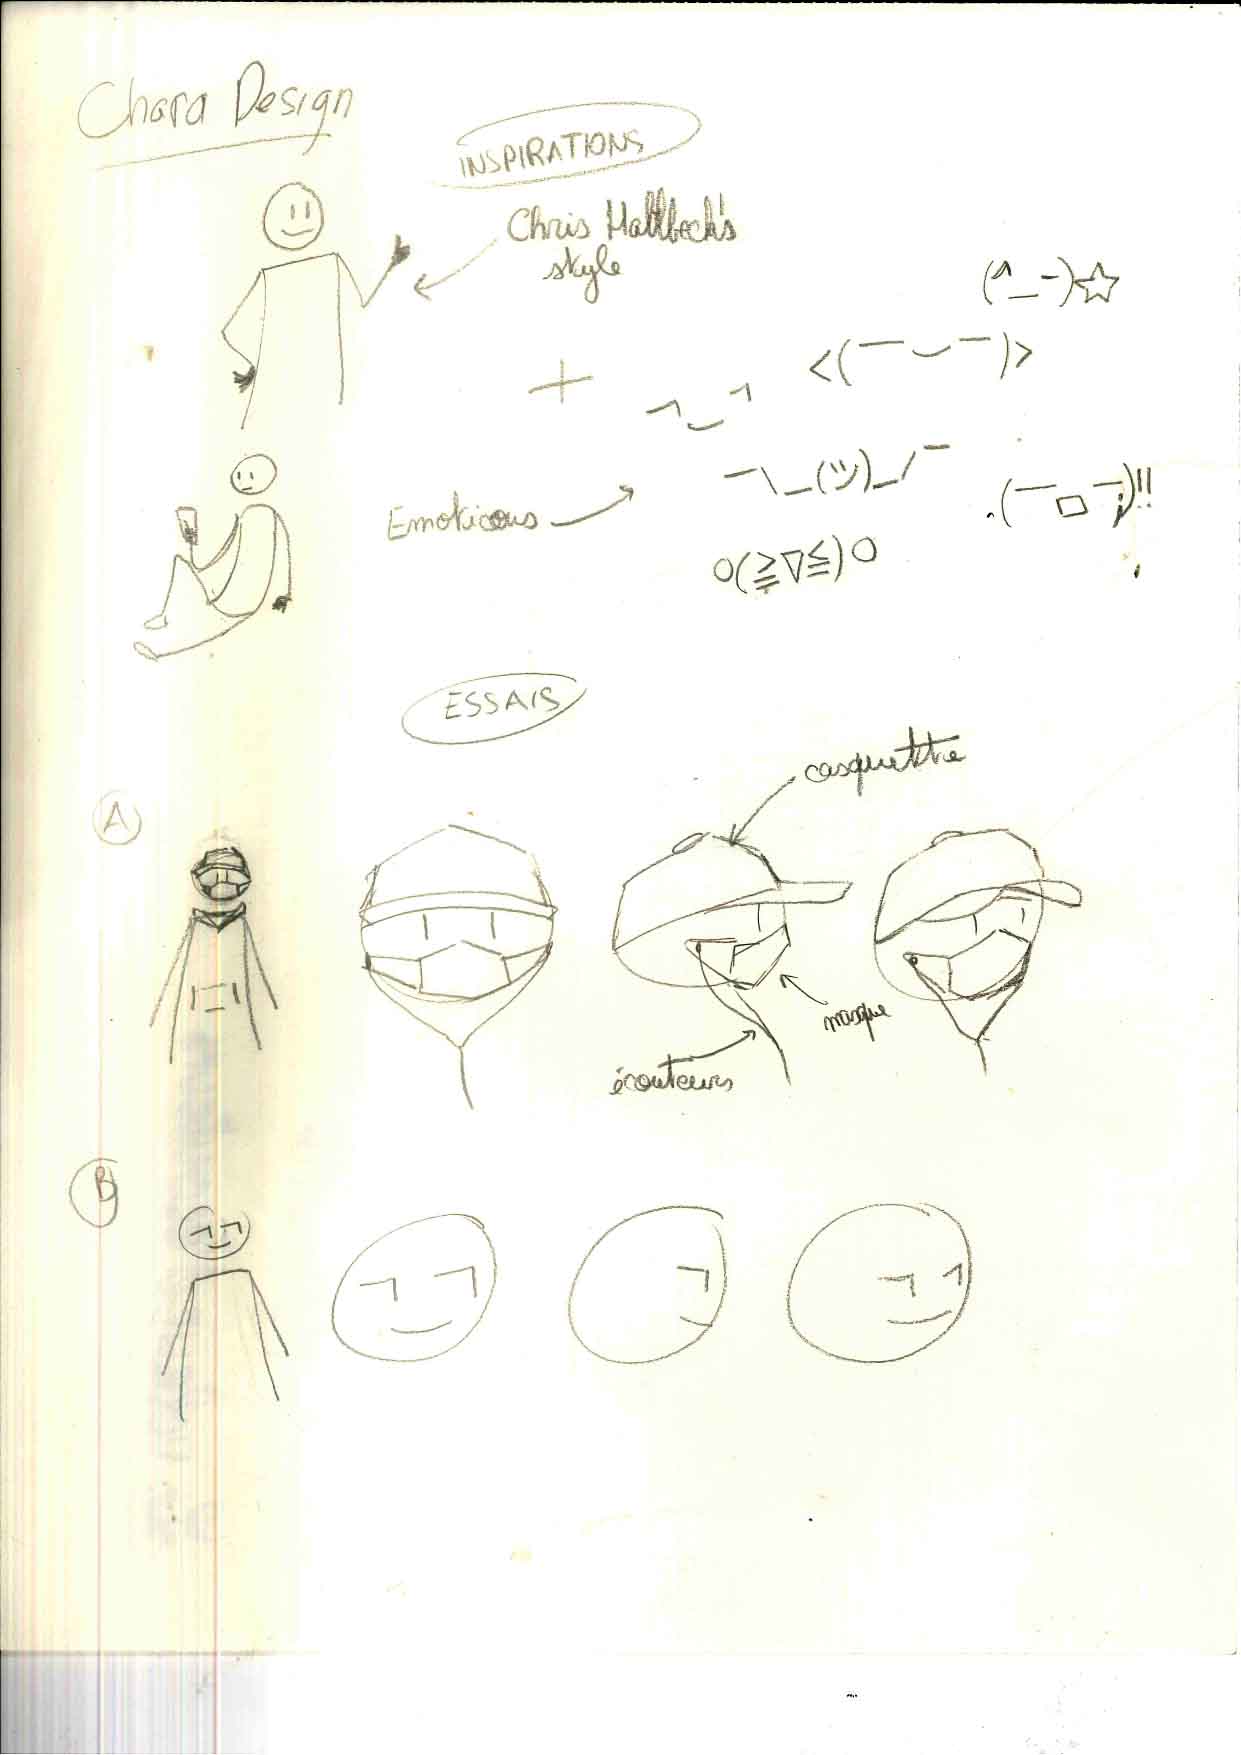 Chara Design
INSPIRATIONS
Chris Hallbeck's
style
(^_-)☆
<(￣‿￣)>
¬‿¬
+
Emoticons
¯\_(ツ)_/¯
.(￣□￣;)!!
O(≧▽≦)O
ESSAIS
casquette
A
masque
écouteurs
B